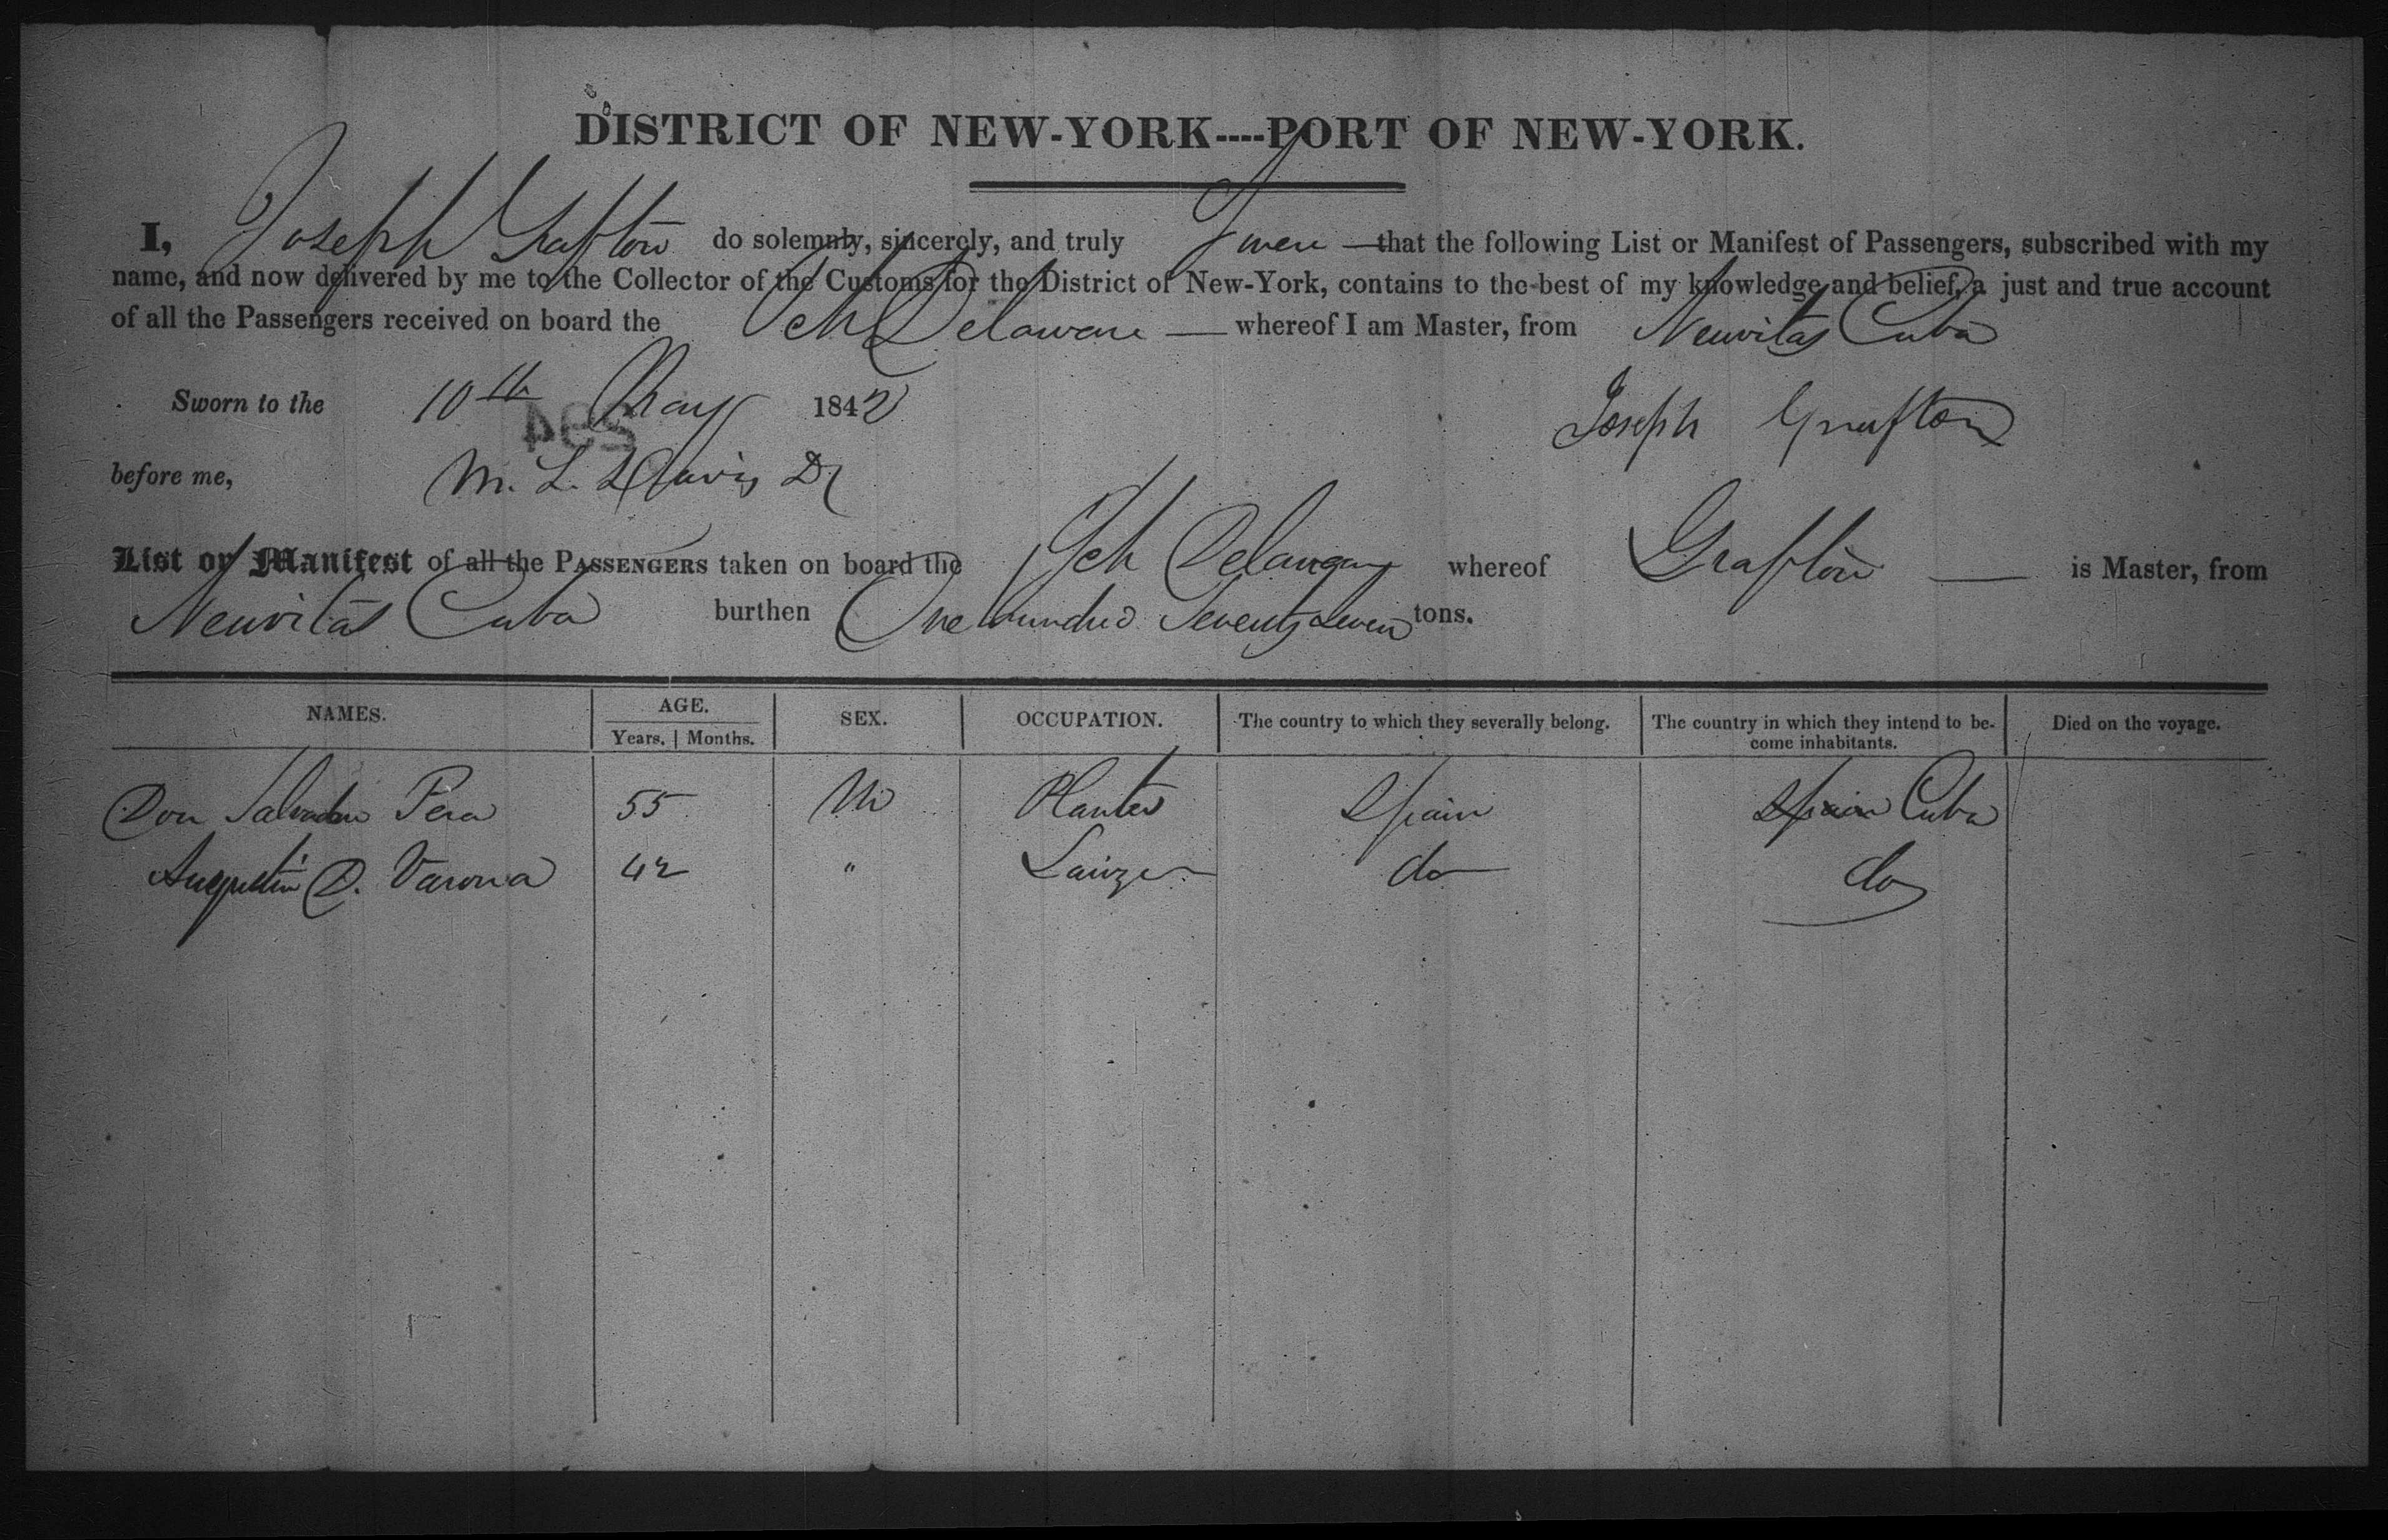 DISTRICT OF NEW-YORK----PORT OF NEW-YORK.
I, Joseph Grafton do solemnly, sincerely, and truly Swear that the following List or Manifest of Passengers, subscribed with my
name, and now delivered by me to the Collector of the Customs for the District of New-York, contains to the best of my knowledge and belief, a just and true account
of all the Passengers received on board the Sch Delaware whereof I am Master, from Neuvitas Cuba
Sworn to the 10th May 1842 Joseph Grafton
before me, M. L. Davis
List or Manifest of all the PASSENGERS taken on board the Sch Delaware whereof Grafton is Master, from
Neuvitas Cuba burthen One hundred Seventy Seven tons.
NAMES. AGE. SEX. OCCUPATION. The country to which they severally belong. The country in which they intend to be- Died on the voyage.
Years. | Months. come inhabitants.
Don Salvador Pera 55 M Planter Spain Spain Cuba
Augustin D. Varona 42 " Lawyer do do